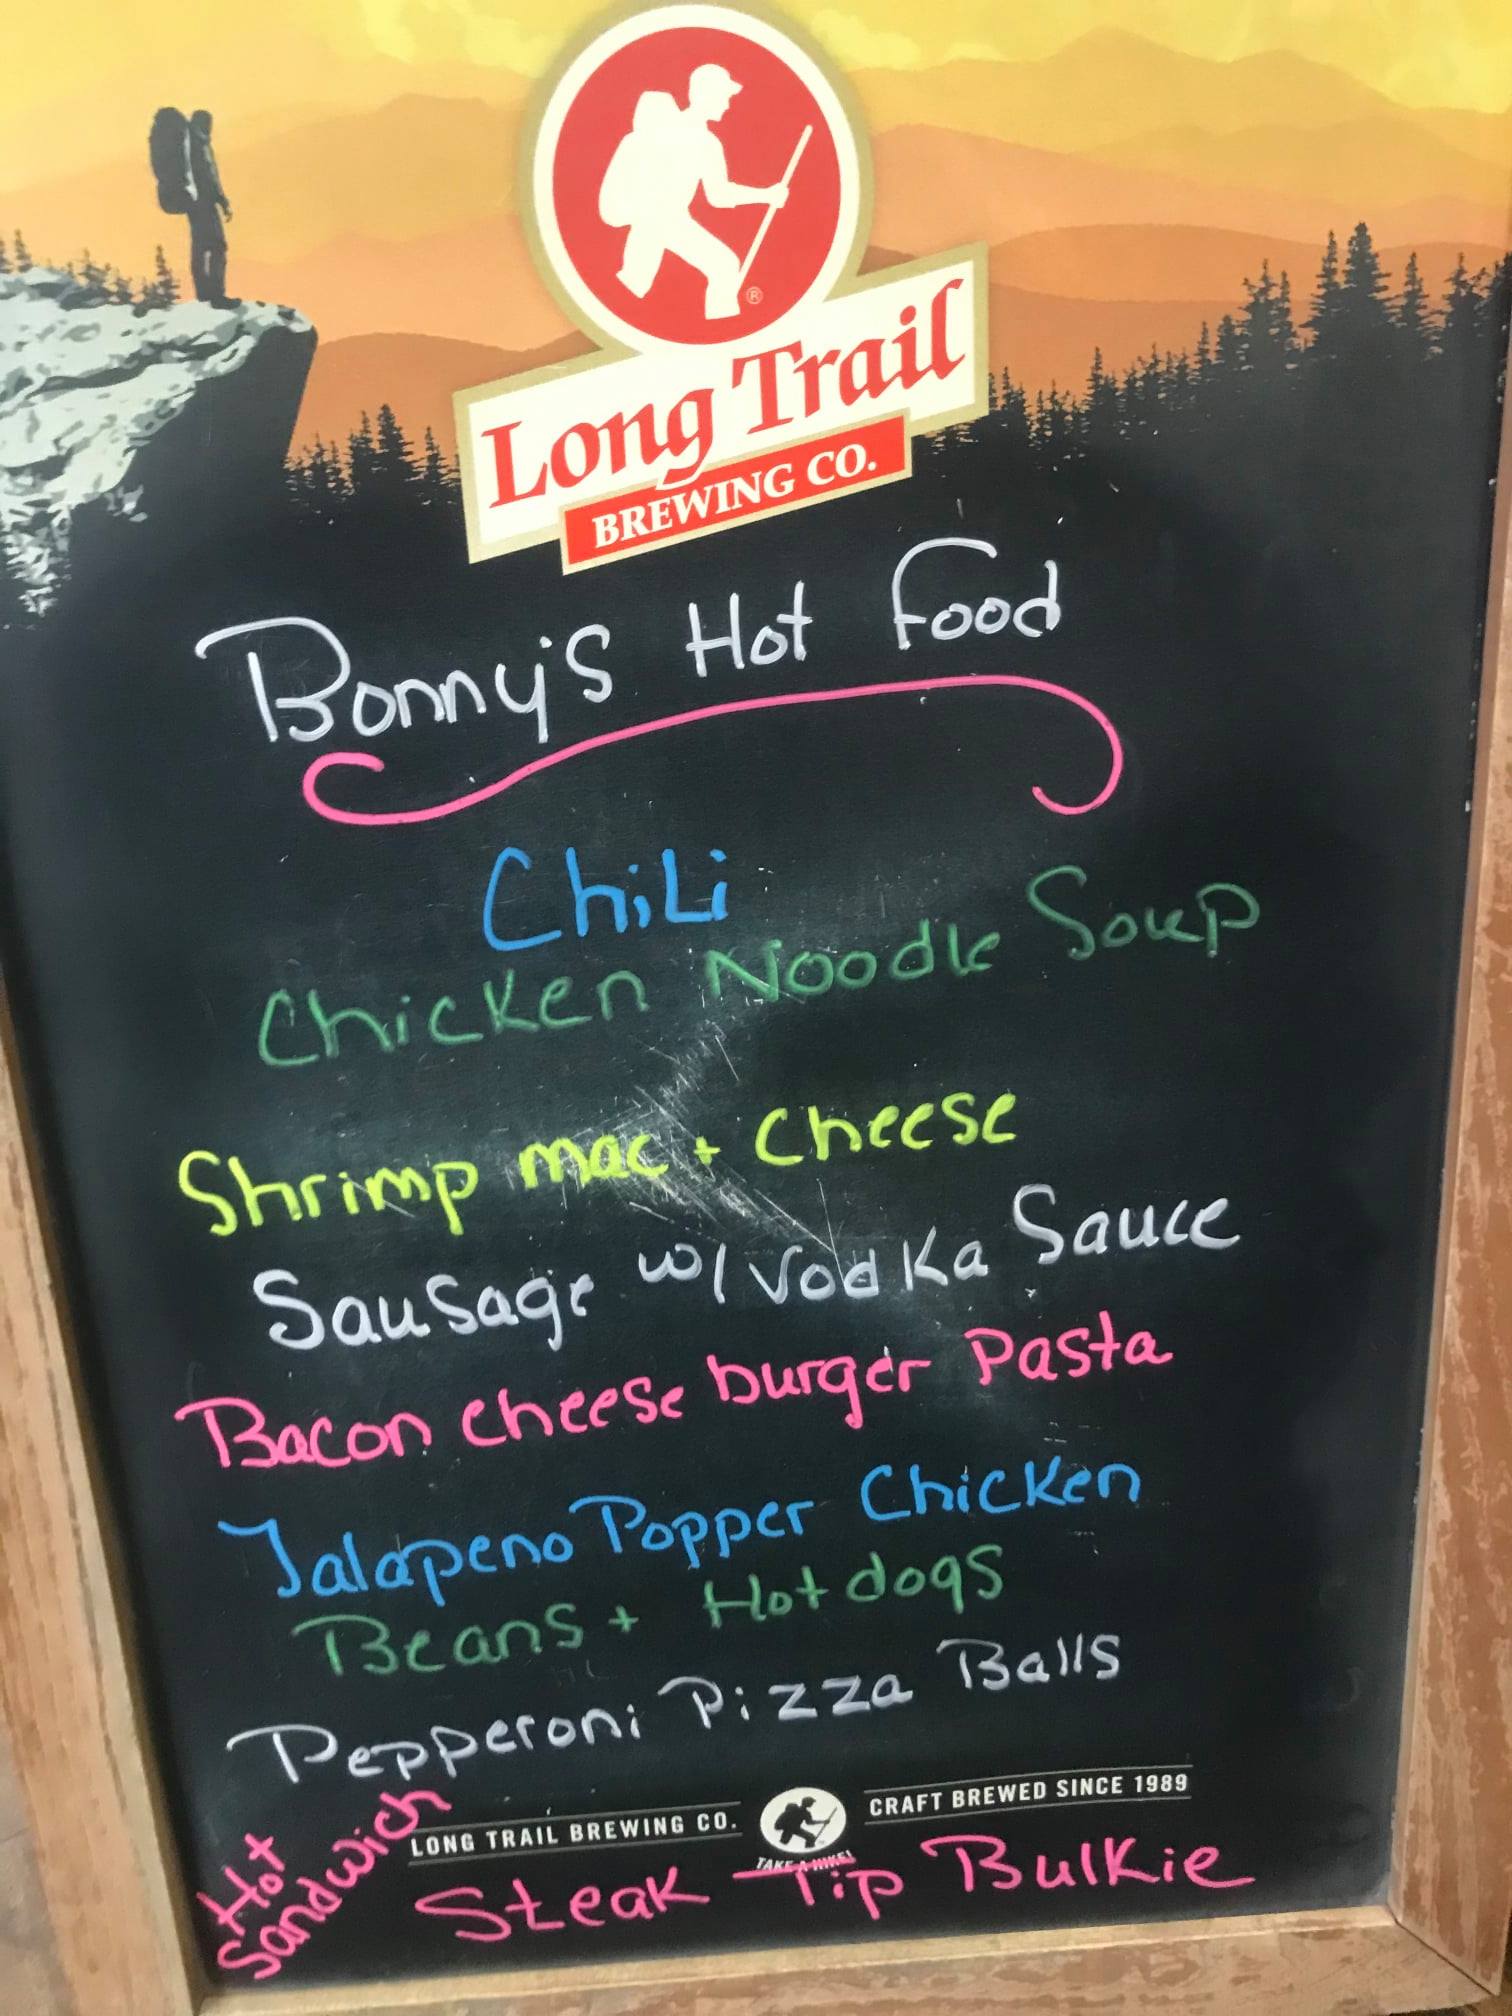 Long Trail
BREWING CO.
Bonny's Hot Food
Chili
Chicken Noodle Soup
Shrimp mac + Cheese
Sausage w/ Vodka Sauce
Bacon cheese burger Pasta
Jalapeno Popper Chicken
Beans + Hot dogs
Pepperoni Pizza Balls
LONG TRAIL BREWING CO.
CRAFT BREWED SINCE 1989
TAKE A HIKE!
Hot
Sandwich
Steak Tip Bulkie